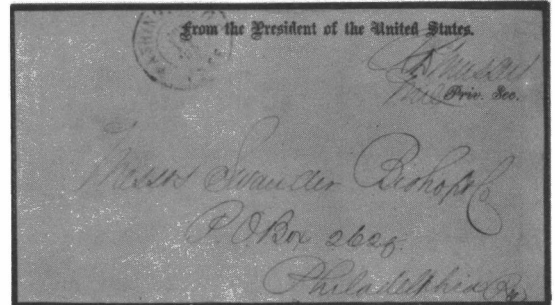 From the President of the United States.
Priv. Sec.
Messrs Swander Bishop & Co
P.O Box 2626.
Philadelphia Pa